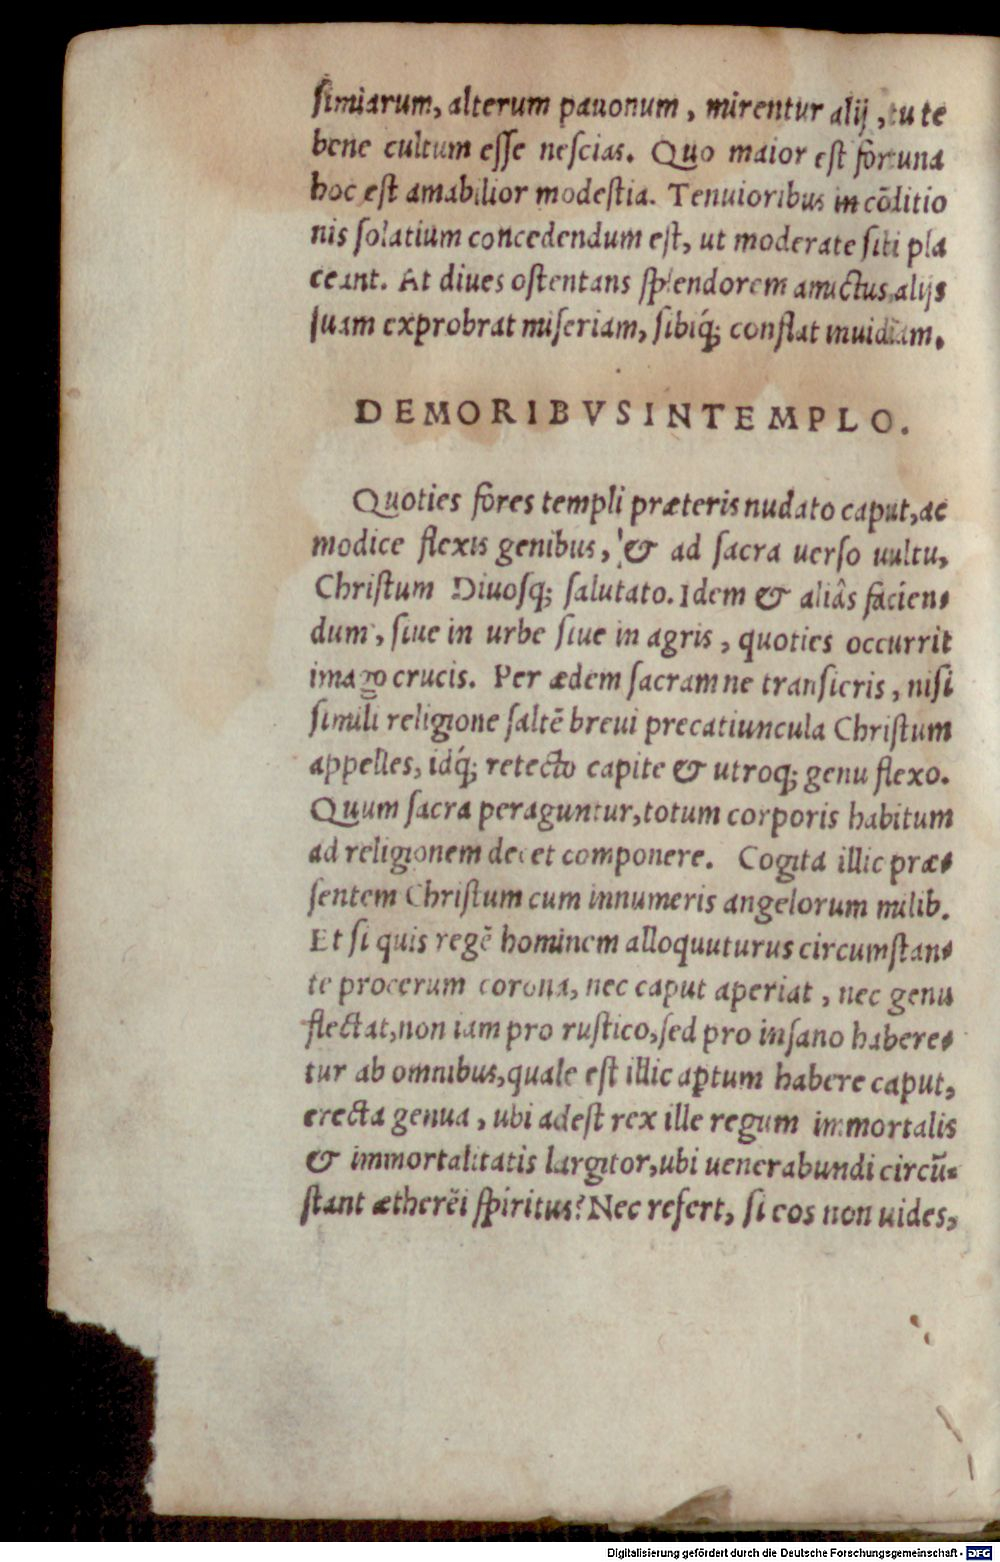 ſimiarum, alterum pauonum, mirentur alij, tu te
bene cultum eſſe neſcias. Quo maior eſt fortuna
hoc eſt amabilior modeſtia. Tenuioribus in cōditio
nis ſolatium concedendum eſt, ut moderate ſibi pla
ceant. At diues oſtentans ſplendorem amictus, alijs
ſuam exprobrat miſeriam, ſibiq́; conflat inuidiam.
DE MORIBVS IN TEMPLO.
Quoties fores templi præteris nudato caput, ac
modice flexis genibus, & ad ſacra uerſo uultu,
Chriſtum Diuoſq; ſalutato. Idem & aliâs facien-
dum, ſiue in urbe ſiue in agris, quoties occurrit
imago crucis. Per ædem ſacram ne tranſieris, niſi
ſimili religione ſaltē breui precatiuncula Chriſtum
appelles, idq́; retecto capite & utroq; genu flexo.
Quum ſacra peraguntur, totum corporis habitum
ad religionem decet componere. Cogita illic præ-
ſentem Chriſtum cum innumeris angelorum milib.
Et ſi quis regē hominem alloquuturus circumſtan-
te procerum corona, nec caput aperiat, nec genu
flectat, non iam pro ruſtico, ſed pro inſano habere-
tur ab omnibus, quale eſt illic aptum habere caput,
erecta genua, ubi adeſt rex ille regum immortalis
& immortalitatis largitor, ubi uenerabundi circū-
ſtant ætherĕi ſpiritus? Nec refert, ſi eos non uides,
Digitalisierung gefördert durch die Deutsche Forschungsgemeinschaft - DFG